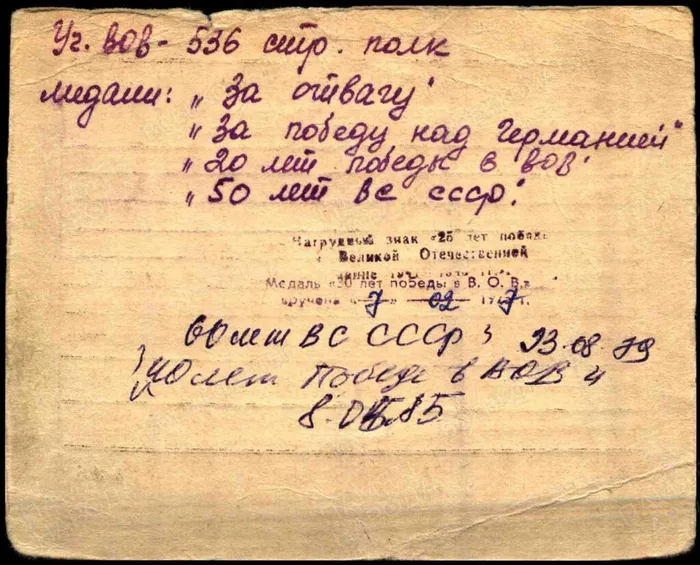 Уч. ВОВ - 536 стр. полк
медали: „За отвагу"
„За победу над Германией"
„20 лет победы в ВОВ"
„50 лет ВС СССР"
Нагрудный знак «25 лет победы
Великой Отечественной
Медаль «30 лет победы в В. О. В.»
вручена «7» 02 1977г.
60 лет ВС СССР 23.08.79
40 лет Победе в ВОВ
8.05.85